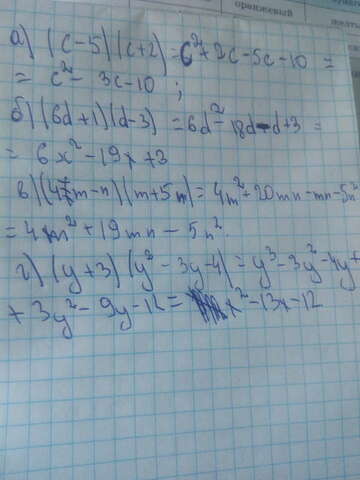 оранжевый
желты
а) (c-5)(c+2)=c²+2c-5c-10 =
= c²- 3c-10 ;
б) (6d+1)(d-3) =6d²-18d-d+3 =
= 6x²-19x+3
в) (4m-n)(m+5n)= 4m²+20mn-mn-5n²
=4m²+19mn-5n².
г) (y+3)(y²-3y-4)=y³-3y²-4y+
+ 3y²-9y-12= x²-13x-12